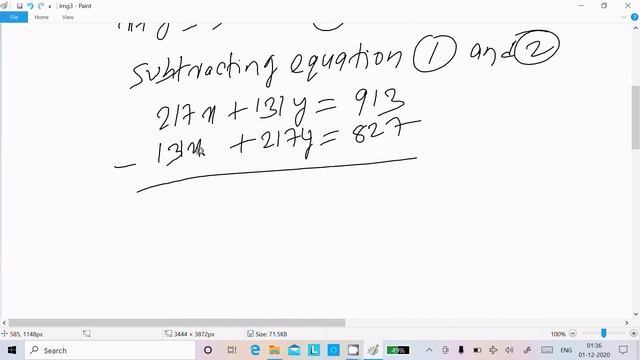 img3 - Paint
File Home View
subtracting equation ① and ②
217x + 131y = 913
131x + 217y = 827
—
585, 1148px 3444 × 3872px Size: 71.5KB 100%
Search 49% ENG 01:36
01-12-2020